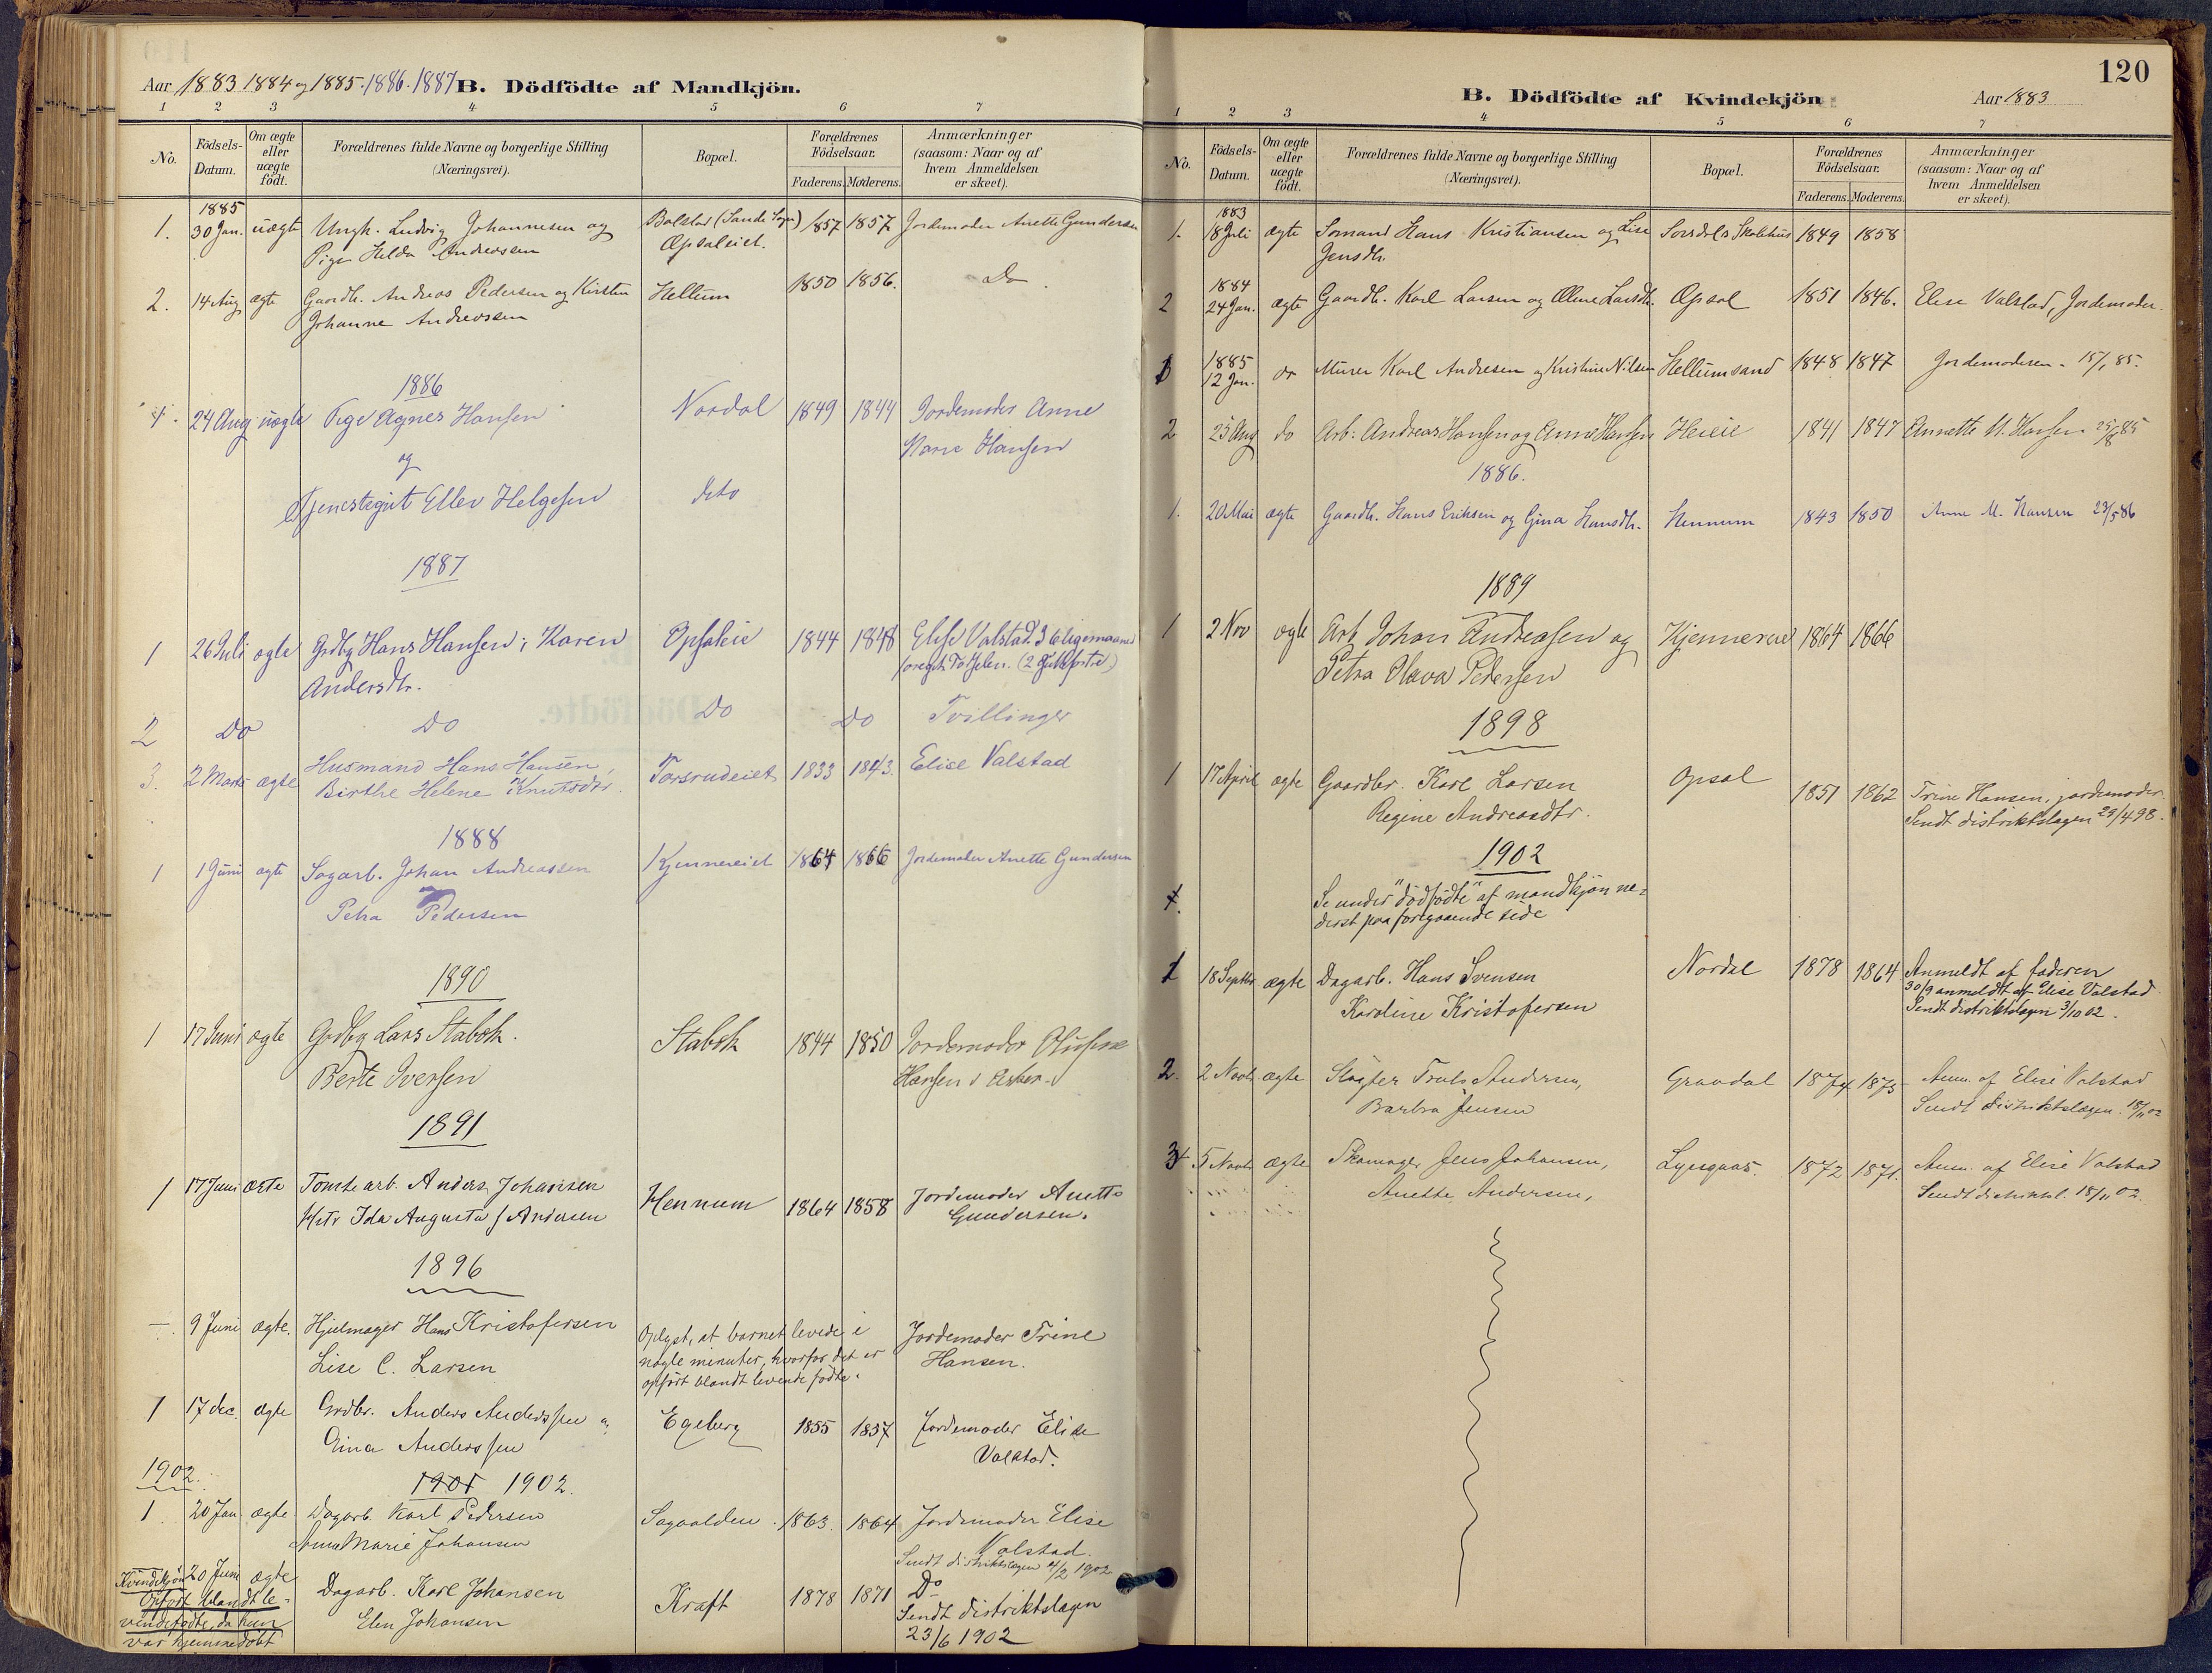 Aar 1883 1884 og 1885. 1886. 1887 B. Dödfödte af Mandkjön.
1 2 3 4 5 6 7
No. Födsels-Datum. Om ægte eller uægte födt. Forældrenes fulde Navne og borgerlige Stilling (Næringsvei). Bopæl. Forældrenes Födselsaar. Faderens. Moderens. Anmærkninger (saasom: Naar og af hvem Anmeldelsen er skeet).
1. 1885 30 Jan. uægte Ungk. Ludvig Johannesen og Bolstad (Sande Sogn) 1857 1857 Jordemoder Anette Gundersen
Pige Helda Andreassen Opsaleiet.
2. 14 Aug ægte Gaardb. Andreas Pedersen og Kirsten Hellum 1850 1856. Do
Johanne Andreassen
1886
1. 24 Aug uægte Pige Agnes Hansen Nordal 1849 1844 Jordemoder Anne
og Marie Hansen
Tjenestegut Ellev Helgesen dito
1887
1 26 Juli ægte Grdbg Hans Hansen; Karen Opsaleie 1844 1848 Elise Valstad.
Andersdtr.
2 Do Do Do Do Tvillinger
3. 2 Marts ægte Husmand Hans Hansen, Torsrudeiet 1833 1843. Elise Valstad
Birthe Helene Knutsdtr.
1888
1 1 Juni ægte Sagarb. Johan Andreassen Kjennereiet 1864 1866 Jordemoder Anette Gundersen
Petra Pedersen
1890
1 17 Juni ægte Grdbg Lars Stabæk. Stabæk 1844 1850 Jordemoder
Berte Iversen Hansen i Asker.
1891
1 17 Juni ægte Tomtearb. Anders Johansen Hennum 1864 1858 Jordemoder Anette
Hstr Ida Augusta Andersen Gundersen.
1896
—. 9 Juni ægte. Hjulmager Hans Kristofersen Oplyst, at barnet levede i Jordemoder Trine
Lise C. Larsen nogle minuter, hvorfor det er Hansen.
opført blandt levende fødte.
1 17 dec. ægte Grdbr. Anders Anderssen og Egeberg 1855 1857 Jordemoder Elise
Gina Anderssen Valstad.
1902. 1901 1902.
1. 20 Jan ægte Dagarb. Karl Pedersen Sagaalden. 1863. 1864 Jordemoder Elise
Anna Marie Johansen Valstad.
Sendt distriktslægen 4/2 1902
Kvindekjøn 20 Juni ægte Dagarb. Karl Johansen Kraft 1878 1871 Do
Opført blandt le- Elen Johansen Sendt distriktslægen
vendefødte, da hun 23/6 1902
var hjemmedøbt
120
B. Dödfödte af Kvindekjön Aar 1883
1 2 3 4 5 6 7
No. Födsels-Datum. Om ægte eller uægte födt. Forældrenes fulde Navne og borgerlige Stilling (Næringsvei). Bopæl. Forældrenes Födselsaar. Faderens. Moderens. Anmærkninger (saasom: Naar og af hvem Anmeldelsen er skeet).
1. 1883 18 Juli ægte Sømand Hans Kristiansen og Lise Sørsdals Skolehus 1849 1858
Jensdtr.
2 1884 24 Jan. ægte Gaardb. Karl Larsen og Oline Larsdtr. Opsal 1851 1846. Elise Valstad, Jordemoder.
1 1885 12 Jan. do Murer Karl Andresen og Kristine Nilsen Hellumsand 1848 1847 Jordemoderen. 15/1 85.
2 25 Aug do Arb: Andreas Hansen og Anne Hansen Heieie 1841 1847 Annette M. Hansen 25/8 85
1886.
1. 20 Mai ægte Gaardb. Hans Eriksen og Gina Hansdtr. Hennum 1843 1850 Anne M. Hansen 23/5 86
1889
1 2 Nov ægte Arb Johan Andreasen og Kjennerud 1864 1866
Petra Olava Pedersen
1898
1 17 April ægte Gaardbr. Karl Larsen Opsal 1851 1862 Trine Hansen, jordemoder.
Regine Andreasdtr. Sendt distriktslægen 23/4 98.
1902
Se under "dödfödte" af mandkjøn ne-
derst paa foregaaende side
1 18 Septbr ægte Dagarb. Hans Svensen Nordal 1878 1864 Anmeldt af faderen
Karoline Kristofersen 30/9 anmeldt af Elise Valstad
Sendt distriktslægen 3/10 02.
2. 2 Novb ægte Slagter Truls Andersen, Graadal 1874 1875 Anm. af Elise Valstad
Barbra Jensen Sendt distriktslægen. 18/11 02
3 5 Novb ægte Skomager Jens Johansen, Lyngaas. 1872 1871. Anm. af Elise Valstad
Anette Andersen, Sendt distriktsl. 18/11 02.